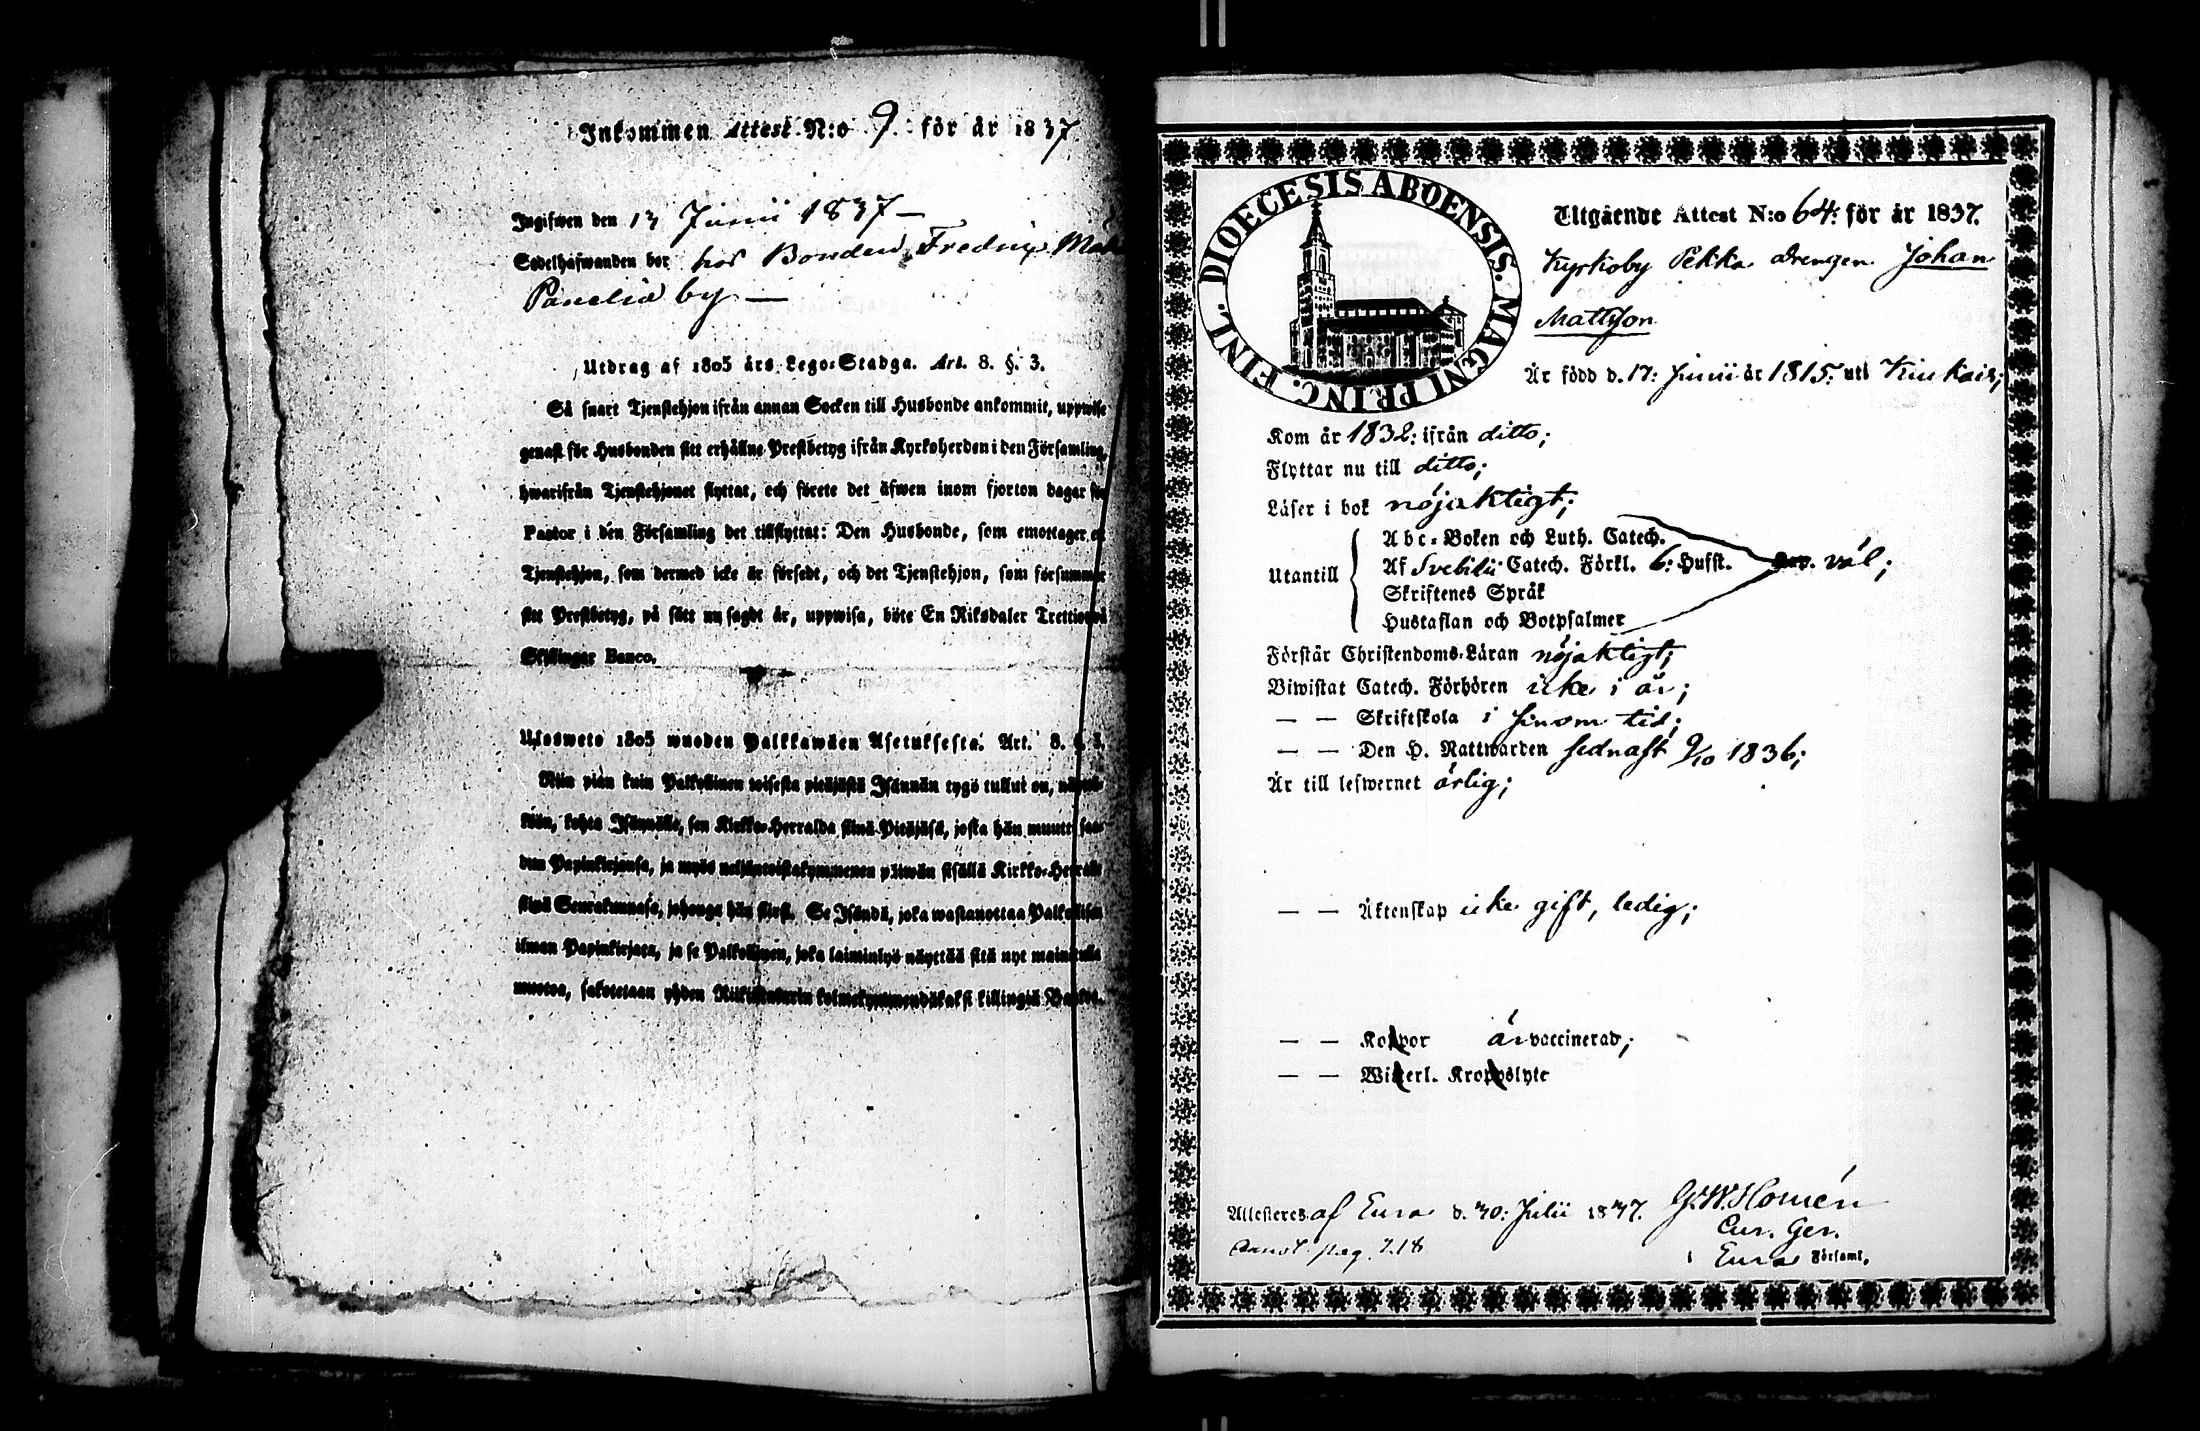 Inkommen Attest N:o 9 för år 1837.
Ingifwen den 13 Junii 1837 —
Sedelhafwanden bor hos Bonden Fredric
Panelia by —
Utdrag af 1805 års Lego-Stadga. Art. 8. §. 3.
Så snart Tjenstehjon ifrån annan Socken till Husbonde ankommit, uppwise
genast för Husbonden sitt erhållne Prestbetyg ifrån Kyrkoherden i den Församling,
hwarifrån Tjenstehjonet flyttat, och förete det äfwen inom fjorton dagar för
Pastor i den Församling det tillflyttat: Den Husbonde, som emottager ett
Tjenstehjon, som dermed icke är försedt, och det Tjenstehjon, som försummar
sitt Prestbetyg, på sätt nu sagdt är, uppwisa, böte En Riksdaler Trettiotwå
Skillingar Banco.
Uloswеto 1805 wuoden Palkkawäen Asetuksesta. Art. 8. §. 3.
Niin pian kuin Palkollinen toisesta pitäjästä Isännän tygö tullut on,
köön, kohta Isännälle, sen Kirkko-Herralda siinä Pitäjäsä, josta hän muutti saa-
dun Papinkirjansa, ja myös neljäntoistakymmenen päiwän sisällä Kirkko-Herralle
siinä Seurakunnasa, johonga hän siirsi. Se Isändä, joka wastanottaa Palkollisen
ilman Papinkirjata, ja se Palkollinen, joka laiminlyö näyttää sitä nyt mainitulla
muotoa, sakotetaan yhden Riikintalarin kolmekymmendäkaksi killingiä Bankot.
FINL. DIOECESIS ABOENSIS. MAGNI PRINC.
Utgående Attest N:o 64: för år 1837.
Kyrkoby Pekka drengen Johan
Mattsson
Är född d. 17: Junii år 1815: uti Kiukais;
Kom år 1832: ifrån ditto;
Flyttar nu till ditto;
Läser i bok nöjaktigt;
Utantill
Abc-Boken och Luth. Catech.
Af Svebilii Catech. Förkl. 6: Hufst. väl;
Skriftenes Språk
Hustaflan och Botpsalmer
Förstår Christendoms-Läran nöjaktigt;
Biwistat Catech. Förhören icke i år;
— — Skriftskola i sinom tid;
— — Den H. Nattwarden sednast 9/10 1836;
Är till lefwernet ärlig;
— — Äktenskap icke gift, ledig;
— — Koppor är vaccinerad;
— — Witterl. Kroppslyte
Attesteres af Eura d. 30: Julii 1837. G. W. Homén
pag. 218 Cur. Ger.
i Eura Församl.